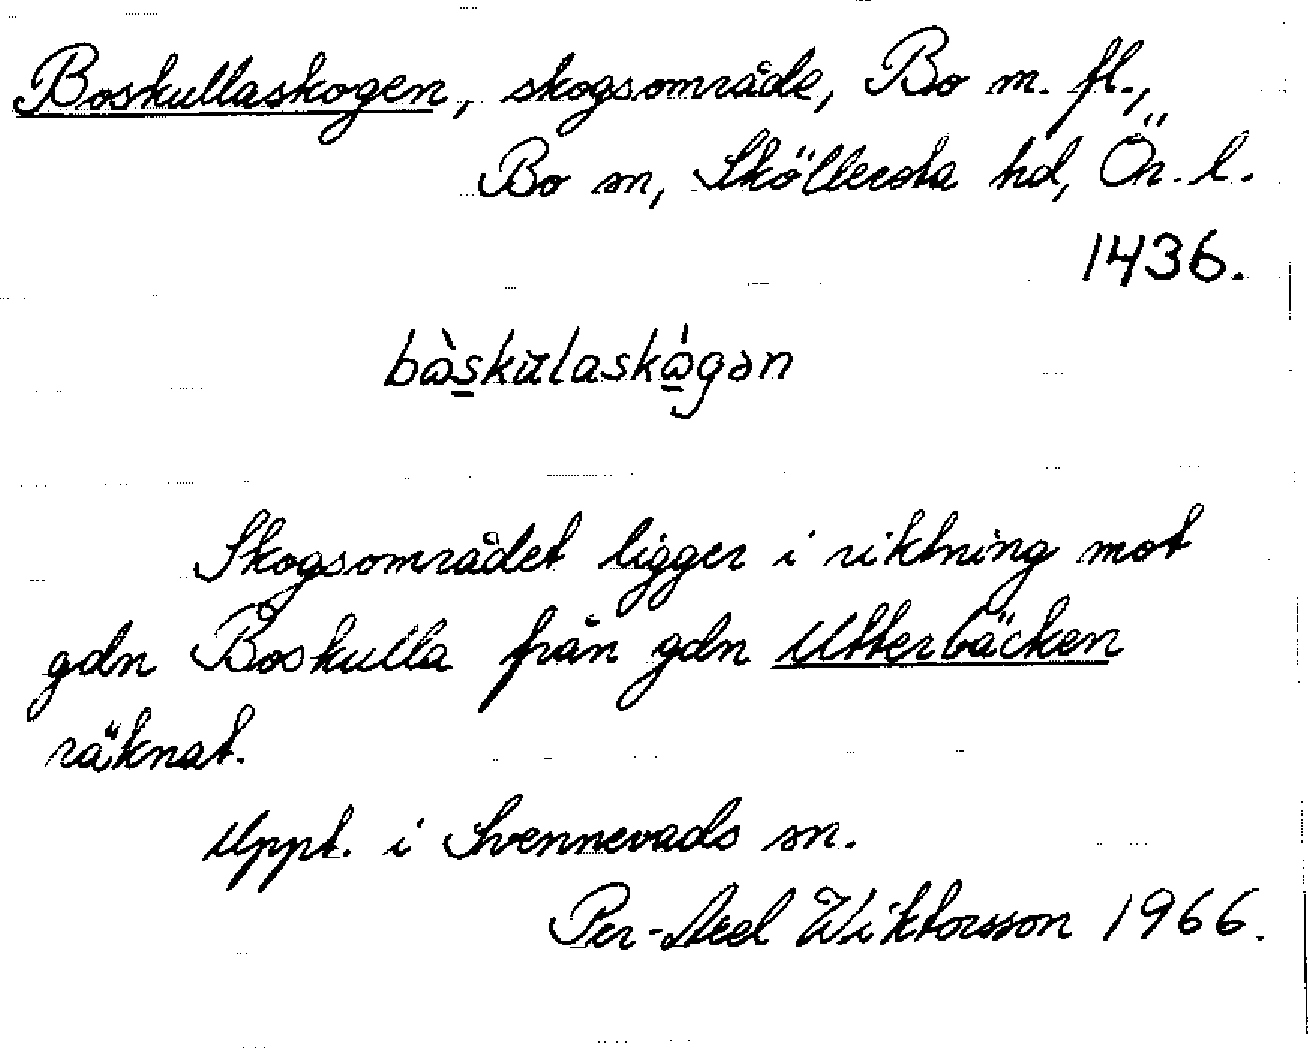 Boskullaskogen, skogsområde, Bo m. fl.,
Bo sn, Sköllersta hd, Ör. l.
1436.
bòskulaskógən
Skogsområdet ligger i riktning mot
gdn Boskulla från gdn Utterbäcken
räknat.
Uppt. i Svennevads sn.
Per-Axel Wiktorsson 1966.